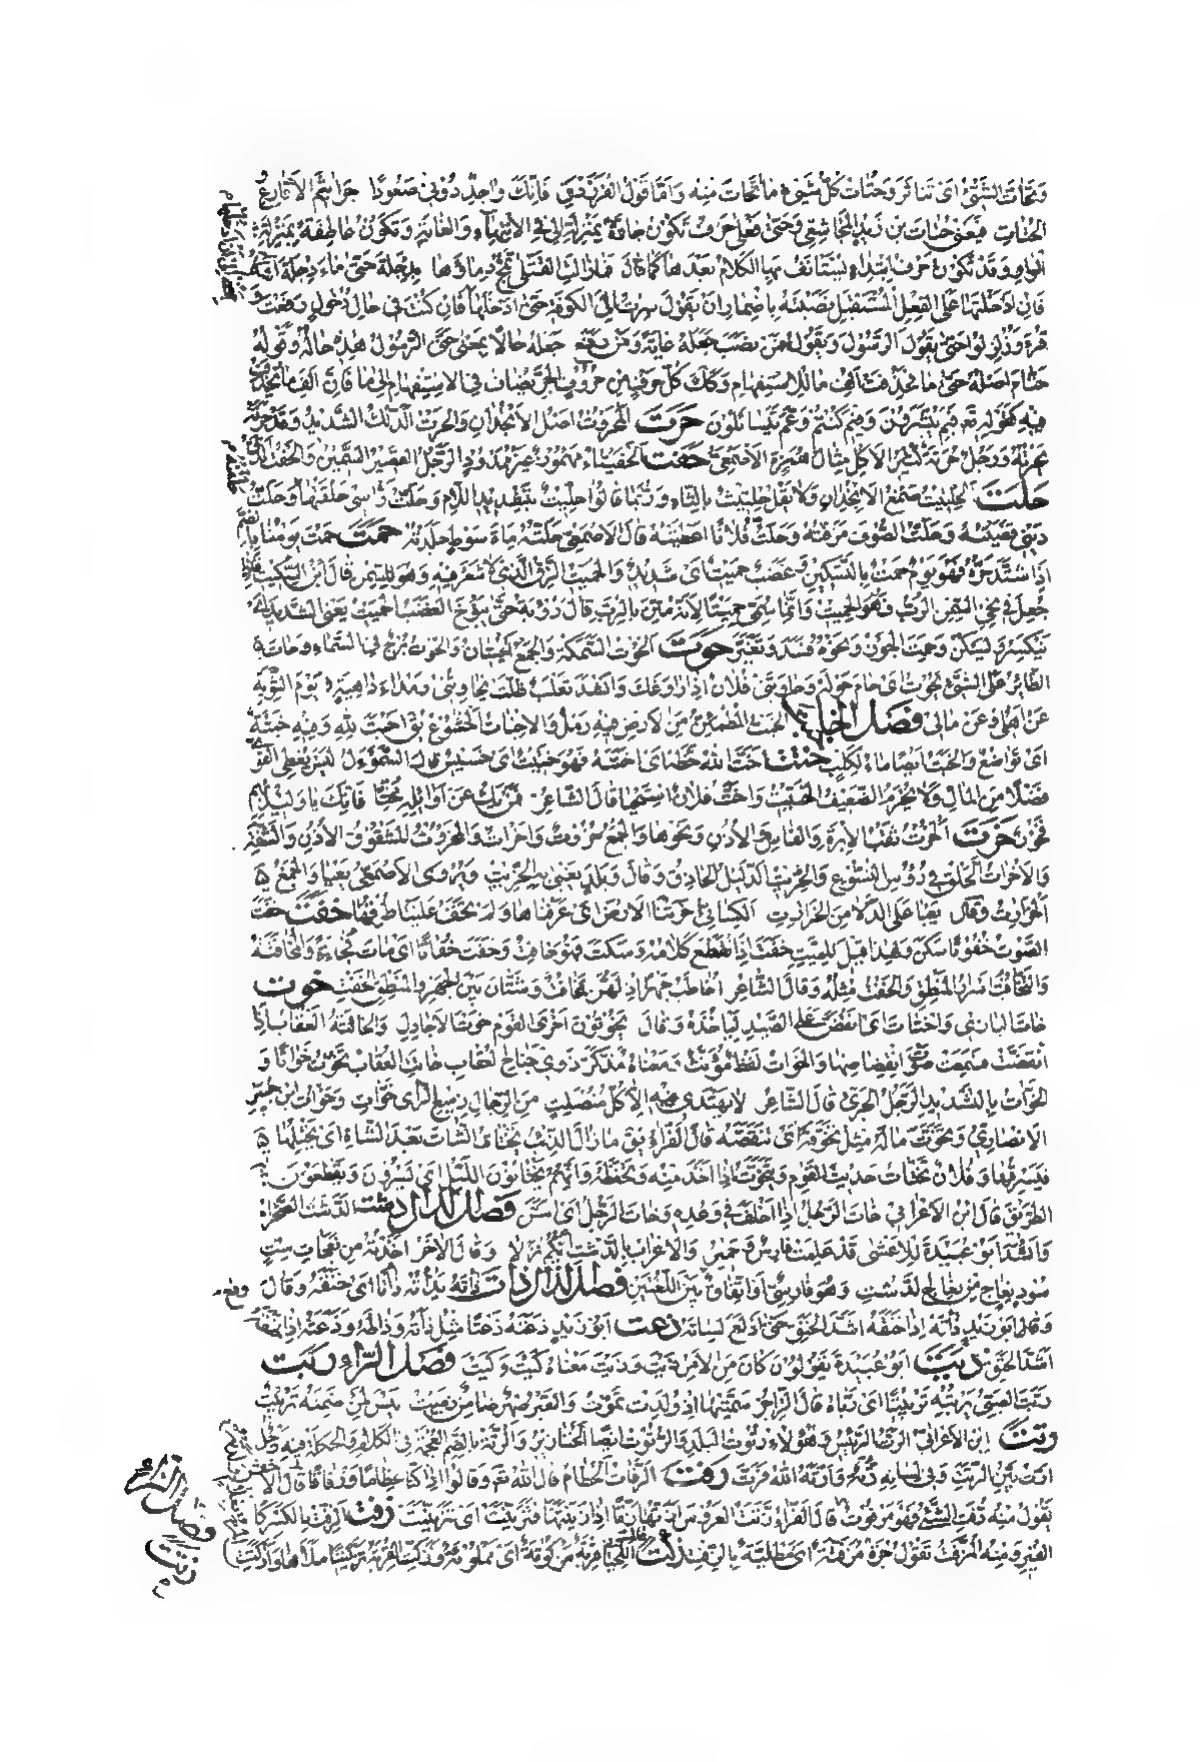 وَتَحَاتَّ الشَّيْءُ اى تَنَاثَرَ وَحُتَاتُ كُلِّ شَيْءٍ مَا تَحَاتَّ مِنْهُ وَاَمَّا قَوْلُ الفَرَزْدَقِ فَاِنَّكَ وَاجِدٌ دُونِى صَعُودًا جَرَاثِيمَ الاَقَارِعِ
الحُتَاتِ فيَعْنِى حُتَاتَ بْنَ زَيْدٍ المُجَاشِعِى وَحَتَّى فَعْلَى حَرْفٌ تَكُونُ جَارَّةً بِمَنْزِلَةِ اِلَى فِى الاِنْتِهَاءِ وَالغَايَةِ وَتَكُونُ عَاطِفَةً بِمَنْزِلَةِ
الوَاوِ وَقَدْ تَكُونُ حَرْفَ ابْتِدَاءٍ يُسْتَأنَفُ بِهَا الكَلَامُ بَعْدَهَا كَمَا قَالَ فَمَا زَالَتِ القَتْلَى تَمُجُّ دِمَاءَهَا بِدِجْلَةَ حَتَّى مَاءُ دِجْلَةَ اَشْكَلُ
فَاِنْ اَدْخَلْتَهَا عَلَى الفِعْلِ المُسْتَقْبَلِ نَصَبْتَهُ بِاِضْمَارِ اَنْ تَقُولُ سِرْتُ اِلَى الكُوفَةِ حَتَّى اَدْخُلَهَا فَاِنْ كُنْتَ فِى حَالِ دُخُولٍ رَفَعْتَ
قُرِئَ وَزُلْزِلُوا حَتَّى يَقُولَ الرَّسُولُ وَيَقُولُ فمَنْ نَصَبَ جَعَلَهُ غَايَةً وَمَنْ رَفَعَ جَعَلَهُ حَالًا بِمَعْنَى حَتَّى الرَّسُولُ هٰذِهِ حَالُهُ وَقَوْلُهُ
حَتَّامَ اَصْلُهُ حَتَّى مَا فحُذِفَتْ اَلِفُ مَا لِلاِسْتِفْهَامِ وَكَذٰلِكَ كُلُّ حَرْفٍ مِنْ حُرُوفِ الجَرِّ يُضَافُ فِى الاِسْتِفْهَامِ اِلَى مَا فَاِنَّ اَلِفَ مَا تُحْذَفُ
فِيهِ كَقَوْلِهِ تع فَبِمَ تُبَشِّرُونَ وَفِيمَ كُنْتُمْ وَعَمَّ يَتَسَاءَلُونَ حَرَتَ المَحْرُوتُ اَصْلُ الاَنْجُذَانِ وَالحَرْتُ الدَّلْكُ الشَّدِيدُ وَقَدْ حَرَتَهُ
يَحْرُتُهُ وَرَجُلٌ حُرَتَةٌ كَثِيرُ الاَكْلِ مِثَالُ هُمَزَةٍ الاَصْمَعِىُّ حَفَتَ الحَفَيْتَاءُ مَهْمُوزٌ غَيْرُ مَمْدُودٍ الرَّجُلُ القَصِيرُ السَّمِينُ وَالحَفْتُ الدَّقُّ
حَلَتَ الحِلْتِيتُ صَمْغُ الاَنْجُذَانِ وَلَا تَقُلْ حِلْثِيثٌ بِالثَّاءِ وَرُبَّمَا قَالُوا حِلِّيتٌ بِتَشْدِيدِ اللَّامِ وَحَلَتُّ رَأسِى حَلَقْتُهَا وَحَلَتُّ
دَيْنِى قَضَيْتُهُ وَحَلَتُّ الصُّوفَ مَزَقْتُهُ وَحَلَتُّ فُلَانًا اَعْطَيْتُهُ قَالَ الاَصْمَعِىُّ حَلَتُّهُ مِائَةَ سَوْطٍ جَلَدْتُهُ حَمَتَ حَمُتَ يَوْمُنَا بِالضَّمِّ
اِذَا اشْتَدَّ حَرُّهُ فَهُوَ يَوْمٌ حَمْتٌ بِالتَّسْكِينِ وَغَضَبٌ حَمِيتٌ اى شَدِيدٌ وَالحَمِيتُ الزِّقُّ الَّذِى لَا شَعَرَ فِيهِ وَهُوَ لِلسَّمْنِ قَالَ ابْنُ السِّكِّيتِ فَاِذَا
جُعِلَ فِى نِحْىِ السَّمْنِ الرُّبُّ فَهُوَ الحَمِيتُ وَاِنَّمَا سُمِّىَ حَمِيتًا لِاَنَّهُ مُتِّنَ بِالرُّبِّ قَالَ رُؤبَةُ حَتَّى يَبُوخَ الغَضَبُ الحَمِيتُ يَعْنِى الشَّدِيدَ اى
يَنْكَسِرَ وَيَسْكُنَ وَحَمِتَ الجَوْزُ وَنَحْوُهُ فَسَدَ وَتَغَيَّرَ حَوَتَ الحُوتُ السَّمَكَةُ وَالجَمْعُ الحِيتَانُ وَالحُوتُ بُرْجٌ فِى السَّمَاءِ وَحَاتَ
الطَّائِرُ عَلَى الشَّىْءِ يَحُوتُ اى حَامَ حَوْلَهُ وَحَاوَتَنِى فُلَانٌ اِذَا رَاوَغَكَ وَانْشَدَ ثَعْلَبٌ ظَلَّتْ تُحَاوِتُنِى رَمْدَاءُ دَاهِيَةٌ يَوْمَ الثَّوِيَّةِ
عَنْ اَهْلِى وَعَنْ مَالِى فَصْلُ الخَاءِ خَبَتَ الخَبْتُ المُطْمَئِنُّ مِنَ الاَرْضِ فِيهِ رَمْلٌ وَالاِخْبَاتُ الخُشُوعُ يُقَ اَخْبَتَ لِلّٰهِ وَفِيهِ خَبْتَةٌ
اى تَوَاضُعٌ وَالخَبْتُ اَيْضًا مَاءٌ لِكَلْبٍ خَتَتَ اَخَتَّ اللّٰهُ حَظَّهُ اى اَخَسَّهُ فَهُوَ خَتِيتٌ اى خَسِيسٌ قَالَ السَّمَوْءَلُ لَيْسَ يُعْطَى القَوِىُّ
فَضْلًا مِنَ المَالِ وَلَا يُحْرَمُ الضَّعِيفُ الخَتِيتُ وَاَخَتَّ فُلَانٌ اسْتَحْيَا قَالَ الشَّاعِرُ فَمَنْ يَكُ عَنْ اَوَائِلِهِ مُخِتًّا فَاِنَّكَ يَا وَلِيدُ بِهِمْ
فَخُورٌ خَرَتَ الخُرْتُ ثَقْبُ الاِبْرَةِ وَالفَاسِ وَالاُذُنِ وَنَحْوِهَا وَالجَمْعُ خُرُوتٌ وَاَخْرَاتٌ وَالمَخْرُوتُ المَشْقُوقُ الاُذُنِ وَالشَّفَةِ
وَالاَخْرَاتُ الحَلَقُ فِى رُؤُسِ النُّسُوعِ وَالخِرِّيتُ الدَّلِيلُ الحَاذِقُ وَقَالَ وَبَلَدٍ يَعْيَى بِهِ الخِرِّيتُ وَيُرْوَى الاَصْمَعِىُّ يَعْيَا وَالجَمْعُ
الخَرَارِتُ وَقَالَ يَغْبَى عَلَى الدَّلَامِزِ الخَرَارِتِ الكِسَائِىُّ خَرَتْنَا الاَرْضَ اى عَرَفْنَاهَا وَلَمْ تَخْفَ عَلَيْنَا طُرُقُهَا خَفَتَ خَفَتَ
الصَّوْتُ خُفُوتًا سَكَنَ وَلِهٰذَا قِيلَ لِلمَيِّتِ خَفَتَ اِذَا انْقَطَعَ كَلَامُهُ وَسَكَتَ فَهُوَ خَافِتٌ وَخَفَتَ خُفَاتًا اى مَاتَ فُجَاءَةً وَالمُخَافَتَةُ
وَالتَّخَافُتُ اِسْرَارُ المَنْطِقِ وَالخَفْتُ مِثْلُهُ وَقَالَ الشَّاعِرُ اُخَاطِبُ جَهْرًا اِذْ لَهُنَّ تَخَافُتٌ وَشَتَّانَ بَيْنَ الجَهْرِ وَالمَنْطِقِ الخَفْتِ خَوَتَ
خَاتَ البَازِى وَاخْتَاتَ اى انْقَضَّ عَلَى الصَّيْدِ لِيَأخُذَهُ وَقَالَ يَخُوتُونَ اُخْرَى القَوْمِ خَوْتَ الاَجَادِلِ وَالخَائِتَةُ العُقَابُ اِذَا
انْقَضَّتْ فَسَمِعْتَ صَوْتَ انْقِضَاضِهَا وَالخَوَاتُ لَفْظٌ مُؤَنَّثٌ وَمَعْنَاهُ مُذَكَّرٌ دَوِىُّ جَنَاحِ العُقَابِ خَاتَتِ العُقَابُ تَخُوتُ خَوَاتًا وَ
الخَوَّاتُ بِالتَّشْدِيدِ الرَّجُلُ الجَرِىءُ قَالَ الشَّاعِرُ لَا يَهْتَدِى فِيهِ اِلَّا كُلُّ مُنْصَلِتٍ مِنَ الرِّجَالِ زَمِيعِ الرَّأىِ خَوَّاتِ وَخَوَّاتُ بْنُ جُبَيْرٍ
الاَنْصَارِىُّ وَتَخَوَّتَ مَالَهُ مِثْلُ تَخَوَّفَهُ اى تَنَقَّصَهُ قَالَ الفَرَّاءُ يُقَ مَا زَالَ الذِّئْبُ يَخْتَاتُ الشَّاةَ بَعْدَ الشَّاةِ اى يَخْتِلُهَا
فيَسْرِقُهَا وَفُلَانٌ يَخْتَاتُ حَدِيثَ القَوْمِ وَيَتَخَوَّتُ اِذَا اَخَذَ مِنْهُ وَتَحَفَّظَهُ وَاِنَّهُمْ يَخْتَاتُونَ اللَّيْلَ اى يَسِيرُونَ وَيَقْطَعُونَ
الطَّرِيقَ قَالَ ابْنُ الاَعْرَابِىِّ خَاتَ الرَّجُلُ اِذَا اَخْلَفَ فِى وَعْدِهِ وَخَاتَ الرَّجُلُ اى اَسَنَّ فَصْلُ الدَّالِ دشت الدَّشْتُ الصَّحْرَاءُ
وَانْشَدَ اَبُو عُبَيْدَةَ لِلاَعْشَى قَدْ عَلِمَتْ فَارِسٌ وَحِمْيَرٌ وَالاَعْرَابُ بِالدَّشْتِ اَيُّكُمْ نَزَلَا وَقَالَ الآخَرُ اَخَذْتُهُ مِنْ نَعَجَاتٍ سِتِّ
سُودٍ نِعَاجٍ مِنْ نِعَاجِ الدَّشْتِ وَهُوَ فَارِسِىٌّ اَوِ اتِّفَاقٌ بَيْنَ اللُّغَتَيْنِ فَصْلُ الذَّالِ ذات ذَأتَهُ يَذْأتُهُ ذَأتًا اى خَنَقَهُ وَقَالَ
وَقَالَ اَبُو زَيْدٍ ذَأتَهُ اِذَا خَنَقَهُ اَشَدَّ الخَنْقِ حَتَّى اَدْلَعَ لِسَانَهُ ذعت اَبُو زَيْدٍ ذَعَتَهُ ذَعْتًا مِثْلُ ذَأتَهُ وَذَأطَهُ وَذَعَتَهُ اِذَا خَنَقَهُ
اَشَدَّ الخَنْقِ ذيت اَبُو عُبَيْدَةَ يَقُولُونَ كَانَ مِنَ الاَمْرِ ذَيْتَ وَذَيْتَ مَعْنَاهُ كَيْتَ وَكَيْتَ فَصْلُ الرَّاءِ ربت
رَبَتَ الصَّبِىَّ يُرَبِّتُهُ تَرْبِيتًا اى رَبَّاهُ قَالَ الرَّاجِزُ سَمَّيْتُهَا اِذْ وُلِدَتْ تَمُوتُ وَالقَبْرُ صِهْرٌ ضَامِنٌ زِمِّيتُ لَيْسَ لِمَنْ ضُمِّنَهُ تَرْبِيتُ
رتت ابْنُ الاَعْرَابِىِّ الرَّتُّ الرَّئِيسُ وَهٰؤُلَاءِ رُتُوتُ البَلَدِ وَالرُّتُوتُ اَيْضًا الخَنَازِيرُ وَالرُّتَّةُ بِالضَّمِّ العُجْمَةُ فِى الكَلَامِ وَالحُكْلَةُ فِيهِ وَرَجُلٌ
اَرَتُّ بَيِّنُ الرَّتَتِ وَفِى لِسَانِهِ رُتَّةٌ وَاَرَتَّهُ اللّٰهُ فَرَتَّ رفت الرُّفَاتُ الحُطَامُ قَالَ اللّٰهُ تع وَقَالُوا اءِذَا كُنَّا عِظَامًا وَرُفَاتًا قَالَ الاَخْفَشُ
تَقُولُ مِنْهُ رُفِتَ الشَّىْءُ فَهُوَ مَرْفُوتٌ قَالَ الفَرَّاءُ زَتَّتُّ العَرُوسَ اَزُتُّهَا زَتًّا اِذَا زَيَّنْتَهَا فَتَزَتَّتَتْ اى تَزَيَّنَتْ زفت الزِّفْتُ بِالكَسْرِ كَا
القِيرِ وَمِنْهُ المُزَفَّتُ تَقُولُ جَرَّةٌ مُزَفَّتَةٌ اى مَطْلِيَّةٌ بِالزِّفْتِ زكت
فَصْلُ الزَّاءِ
زتت